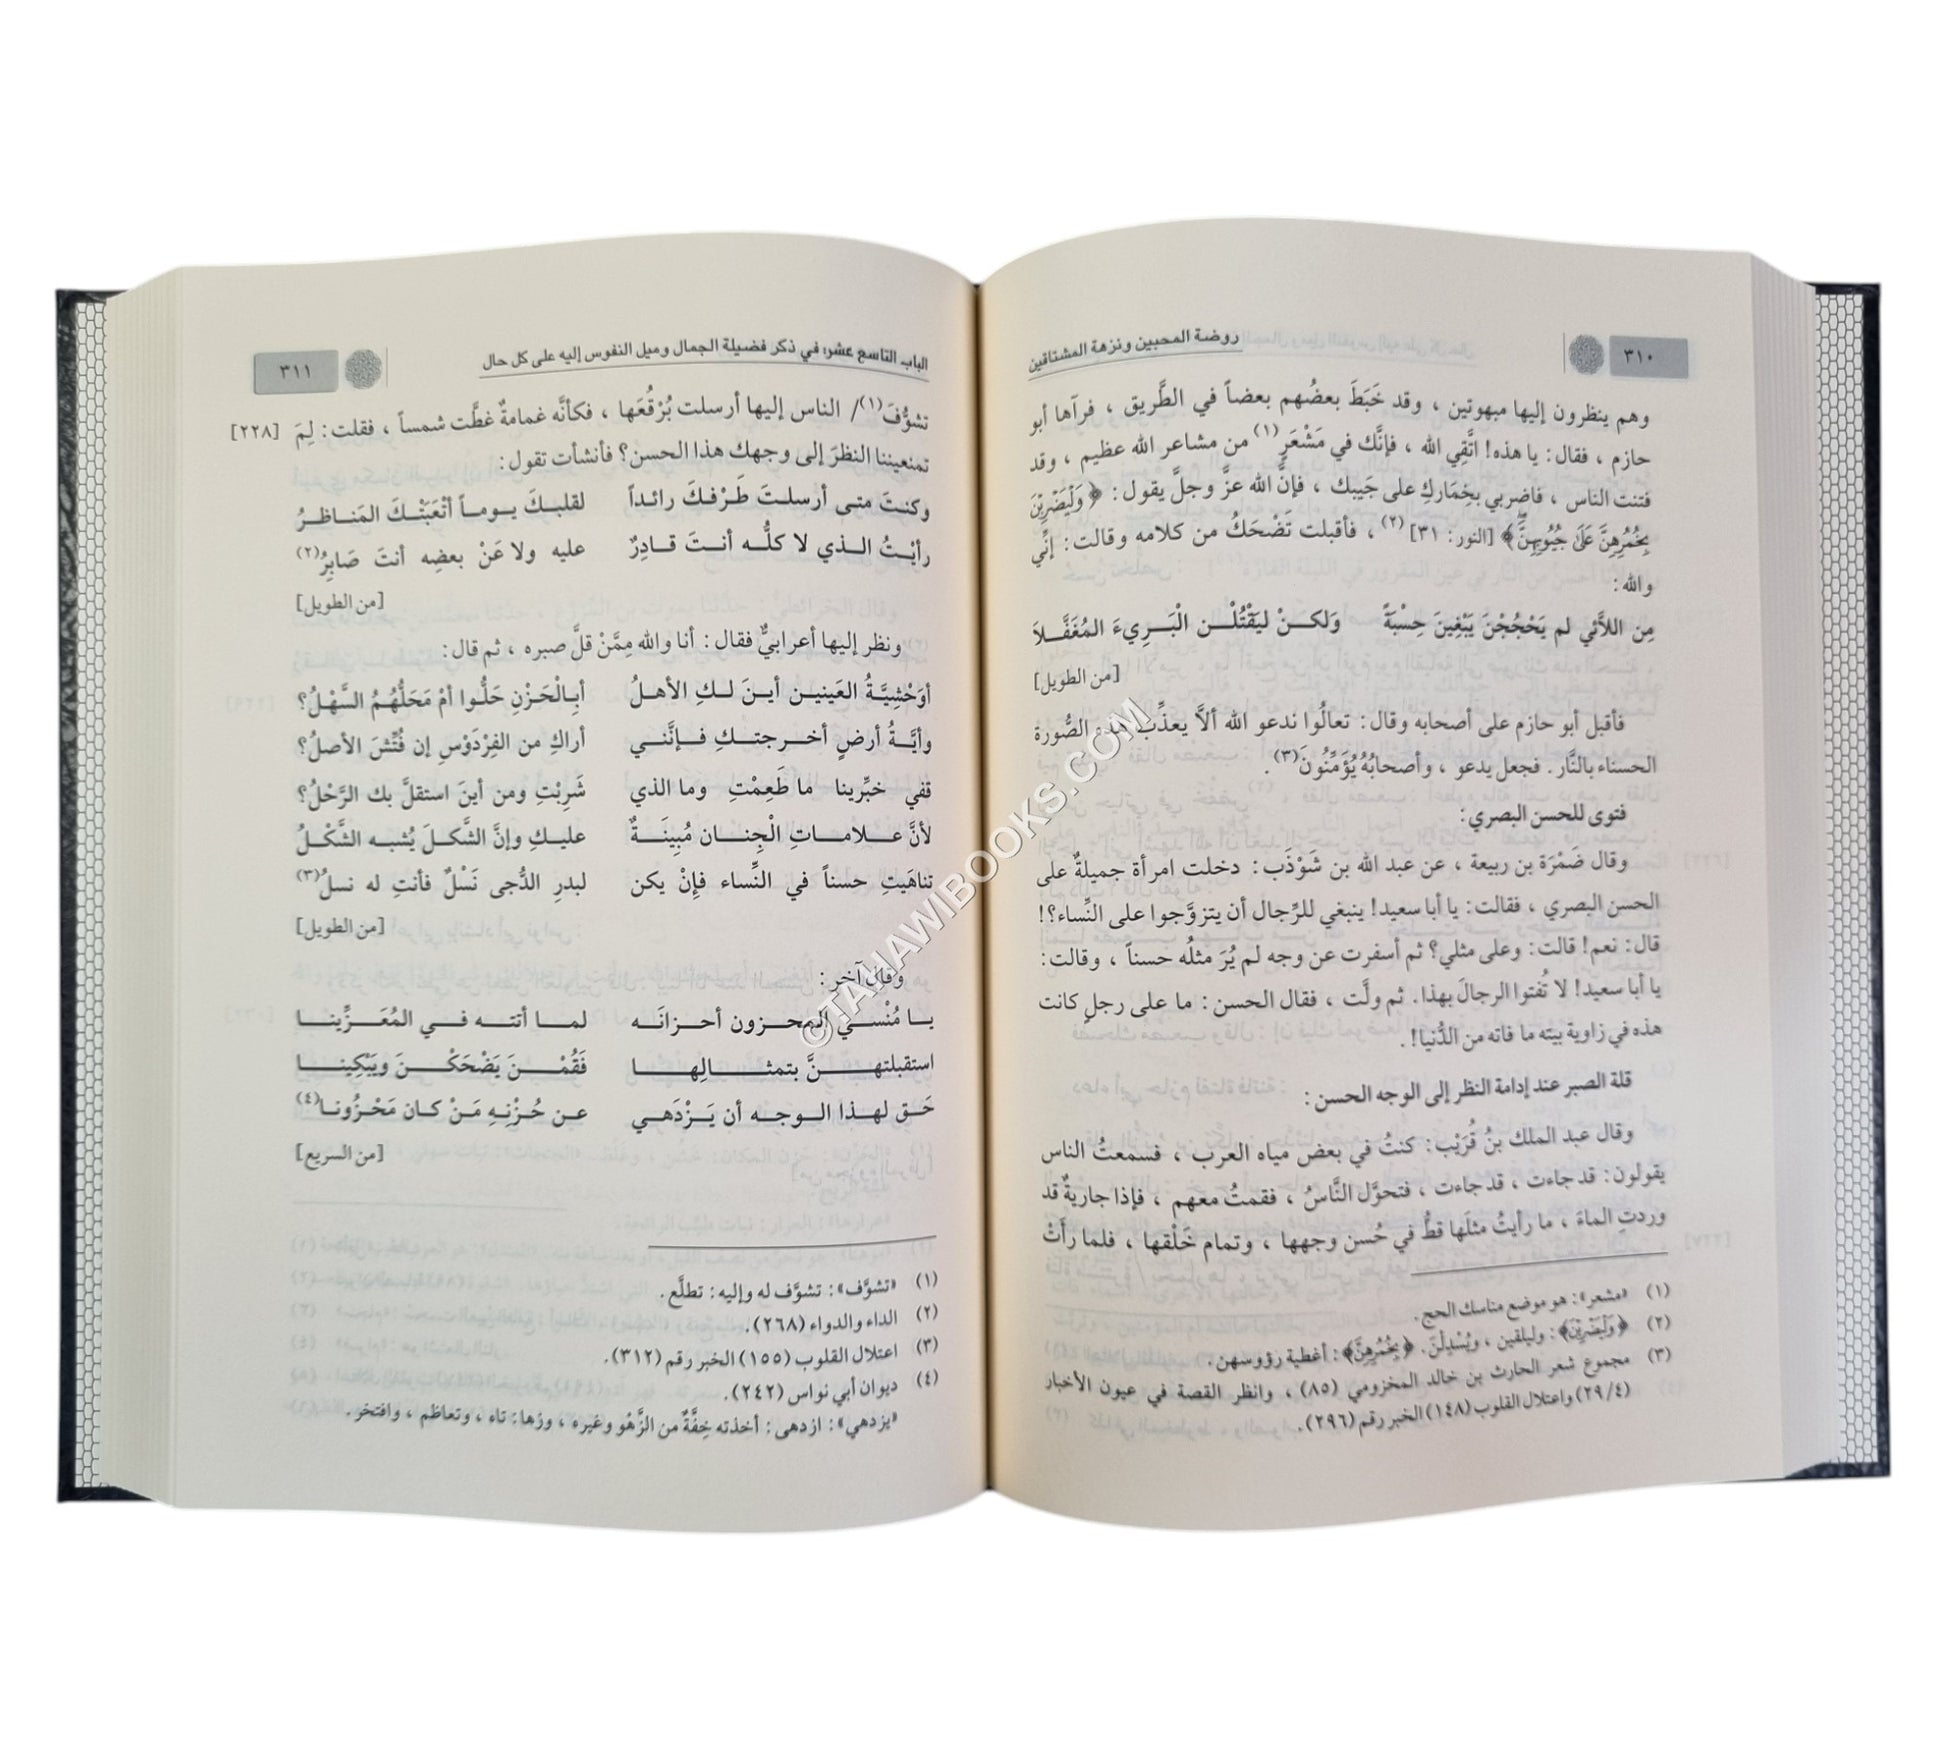 روضة المحبين ونزهة المشتاقين
٣١٠
وهم ينظرون إليها مبهوتين ، وقد خَبَطَ بعضُهم بعضاً في الطَّريق ، فرآها أبو
حازم ، فقال : يا هذه! اتَّقِي الله ، فإنَّك في مَشْعَرٍ(١) من مشاعر الله عظيم ، وقد
فتنت الناس ، فاضربي بخِمَاركِ على جَيبك ، فإنَّ الله عزَّ وجلَّ يقول : ﴿ وَلْيَضْرِبْنَ
بِخُمُرِهِنَّ عَلَىٰ جُيُوبِهِنَّ﴾ [النور : ٣١] (٢) ، فأقبلت تَضْحَكُ من كلامه وقالت : إنِّي
والله :
مِن اللاَّئي لم يَحْجُجْنَ يَبْغِينَ حِسْبَةً وَلكنْ ليَقْتُلْنَ الْبَرِيءَ المُغَفَّلاَ
[من الطويل]
فأقبل أبو حازم على أصحابه وقال : تعالُوا ندعو الله ألاَّ يعذِّب هذه الصُّورة
الحسناء بالنَّار . فجعل يدعو ، وأصحابُهُ يُؤَمِّنُونَ(٣) .
فتوى للحسن البصري :
وقال ضَمْرَة بن ربيعة ، عن عبد الله بن شَوْذَب : دخلت امرأة جميلةٌ على
الحسن البصري ، فقالت : يا أبا سعيد! ينبغي للرِّجال أن يتزوَّجوا على النِّساء؟!
قال : نعم! قالت : وعلى مثلي؟ ثم أسفرت عن وجه لم يُرَ مثلُه حسناً ، وقالت :
يا أبا سعيد! لا تُفتوا الرجالَ بهذا . ثم ولَّت ، فقال الحسن : ما على رجلٍ كانت
هذه في زاوية بيته ما فاته من الدُّنيا! .
قلة الصبر عند إدامة النظر إلى الوجه الحسن :
وقال عبد الملك بنُ قُرَيْب : كنتُ في بعض مياه العرب ، فسمعتُ الناس
يقولون : قد جاءت ، قد جاءت ، فتحوَّل النَّاسُ ، فقمتُ معهم ، فإذا جاريةٌ قد
وردتِ الماءَ ، ما رأيتُ مثلَها قطُّ في حُسن وجهها ، وتمام خَلْقها ، فلما رأَتْ
(١) «مشعر» : هو موضع مناسك الحج .
(٢) ﴿وَلْيَضْرِبْنَ﴾ : وليلقين ، ويُسْدِلْنَ . ﴿بِخُمُرِهِنَّ﴾ : أغطية رؤوسهن .
(٣) مجموع شعر الحارث بن خالد المخزومي (٨٥) ، وانظر القصة في عيون الأخبار
(٢٩/٤) واعتلال القلوب (١٤٨) الخبر رقم (٢٩٦) .
الباب التاسع عشر: في ذكر فضيلة الجمال وميل النفوس إليه على كل حال
٣١١
تشوُّفَ(١)/ الناس إليها أرسلت بُرْقُعَها ، فكأنَّه غمامةٌ غطَّت شمساً ، فقلت : لِمَ [٢٢٨]
تمنعيننا النظرَ إلى وجهك هذا الحسن؟ فأنشأت تقول :
وكنتَ متى أرسلتَ طَرْفكَ رائداً لقلبكَ يوماً أتْعَبَتْكَ المَناظرُ
رأيْتُ الذي لا كلُّه أنتَ قادِرٌ عليه ولا عَنْ بعضِه أنتَ صَابِرُ(٢)
[من الطويل]
ونظر إليها أعرابيٌّ فقال : أنا والله مِمَّنْ قلَّ صبره ، ثم قال :
أوَحْشِيَّةُ العَينين أينَ لكِ الأهلُ أبِالْحَزْنِ حَلُّوا أمْ مَحَلُّهُمُ السَّهْلُ؟
وأيَّةُ أرضٍ أخرجتكِ فإنَّني أراكِ من الفِرْدَوْسِ إن فُتِّشَ الأصلُ؟
قفي خبِّرينا ما طَعِمْتِ وما الذي شَرِبْتِ ومن أينَ استقلَّ بك الرَّحْلُ؟
لأنَّ علاماتِ الْجِنان مُبِينَةٌ عليكِ وإنَّ الشَّكلَ يُشبه الشَّكْلُ
تناهَيتِ حسناً في النِّساء فإنْ يكن لبدرِ الدُّجى نَسْلٌ فأنتِ له نسلُ(٣)
[من الطويل]
وقال آخر :
يا مُنْسيَ المحزون أحزانَه لما أتته في المُعَزِّينا
استقبلتهنَّ بتمثالِها فَقُمْنَ يَضْحَكْنَ ويَبْكِينا
حَق لهذا الوجه أن يَزْدَهي عن حُزْنِهِ مَنْ كان مَحْزُونا(٤)
[من السريع]
(١) «تشوَّف» : تشوَّف له وإليه : تطلَّع .
(٢) الداء والدواء (٢٦٨) .
(٣) اعتلال القلوب (١٥٥) الخبر رقم (٣١٢) .
(٤) ديوان أبي نواس (٢٤٢) .
«يزدهي» : ازدهى : أخذته خِفَّةٌ من الزَّهْو وغيره ، وزها : تاه ، وتعاظم ، وافتخر .
©TAHAWIBOOKS.COM